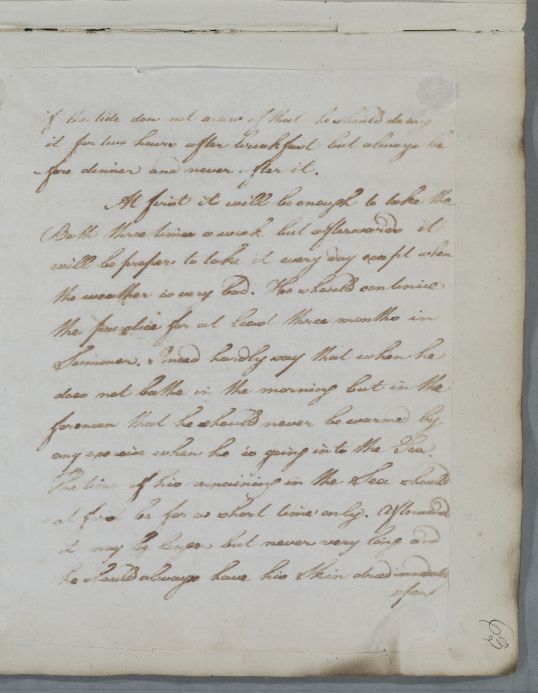 if the tide does not answer that he should delay
it for two hours after breakfast but always be
fore dinner and never after it.
At first it will be enough to take the
Bath three times a week but afterwards it
will be proper to take it every day except when
the weather is very bad. He should continue
the practice for at least three months in
Summer. I need hardly say that when he
does not bathe in the morning but in the
forenoon that he should never be warmed by
any exercise when he is going into the Sea.
The time of his remaining in the Sea should
at first be for a short time only. Afterwards
it may be longer but never very long and
he should always have his Skin dried
upon
63